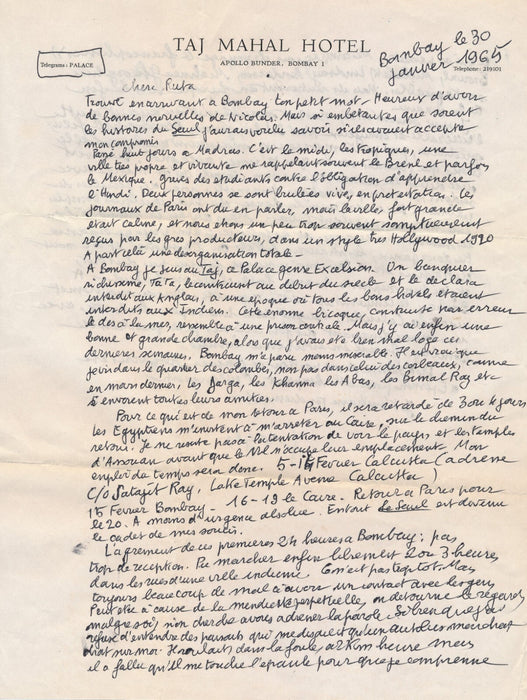 TAJ MAHAL HOTEL
Telegrams: PALACE
APOLLO BUNDER, BOMBAY 1
Telephone: 219101
Bombay le 30
janvier 1965
Chere
Trouvé en arrivant à Bombay ton petit mot - Heureux d'avoir
de bonnes nouvelles de Nicolas. Mais si embêtantes que soient
les histoires du Seuil j'aurais voulu savoir s'ils avaient accepté
mon compromis
Passé huit jours à Madras. C'est le midi, les tropiques, une
ville très propre et vivante me rappelant souvent le Brésil et parfois
le Mexique. Grèves des étudiants contre l'obligation d'apprendre
l'Hindi. Deux personnes se sont brulées vives, en protestation. Les
journaux de Paris ont du en parler, mais la ville, fort grande
était calme, et nous étions un peu trop souvent somptueusement
reçus par les gros producteurs, dans un style très Hollywood 1920
A part cela une desorganisation totale -
A Bombay je suis au Taj, a Palace genre Excelsior. Un banquier
richissime, Tata, le construit au début du siècle et le déclara
interdit aux Anglais, à une époque où tous les bons hotels étaient
interdits aux Indiens. Cette énorme bicoque, construite par erreur
le dos à la mer, ressemble à une prison centrale. Mais j'y ai enfin une
bonne et grande chambre, alors que j'avais été bien mal logé ces
dernières semaines. Bombay me parait moins misérable. Il est vrai que
je vis dans le quartier des colombes, non pas dans celui des corbeaux, comme
en mars dernier, les Garga, les Khanna les Abas, les Bimal Ray etc
t'envoient toutes leurs amitiés.
Pour ce qui est de mon retour à Paris, il sera retardé de 3 ou 4 jours
Les Egyptiens m'invitent à m'arrêter au Caire, sur le chemin du
retour. Je ne résiste pas à la tentation de voir le pays et les temples
d'Assouan avant que le Nil n'occupe leur emplacement. Mon
emploi du temps sera donc. 5-15 Fevrier Calcutta (adresse
C/o Satyajit Ray, Lake Temple Avenue Calcutta)
15 Fevrier Bombay - 16-19 le Caire - Retour à Paris pour
le 20. A moins d'urgence absolue. En tout Le Seuil est devenu
le cadet de mes soucis.
L'agrément de ces premières 24 heures à Bombay: pas
trop de reception. Pu marcher enfin librement 2 ou 3 heures
dans les rues d'une ville indienne. Ce n'est pas trop tot. Mais
toujours beaucoup de mal à avoir un contact avec les gens
Peut etre à cause de la mendicité perpetuelle, on détourne le regard,
malgré soi, si on cherche à vous adresser la parole. Si bien que j'ai
refusé d'entendre des passants qui me disaient qu'un autobus marchait
droit sur moi. Il roulait dans la foule, à 2 Km heure mais
il a fallu qu'il me touche l'épaule pour que je comprenne